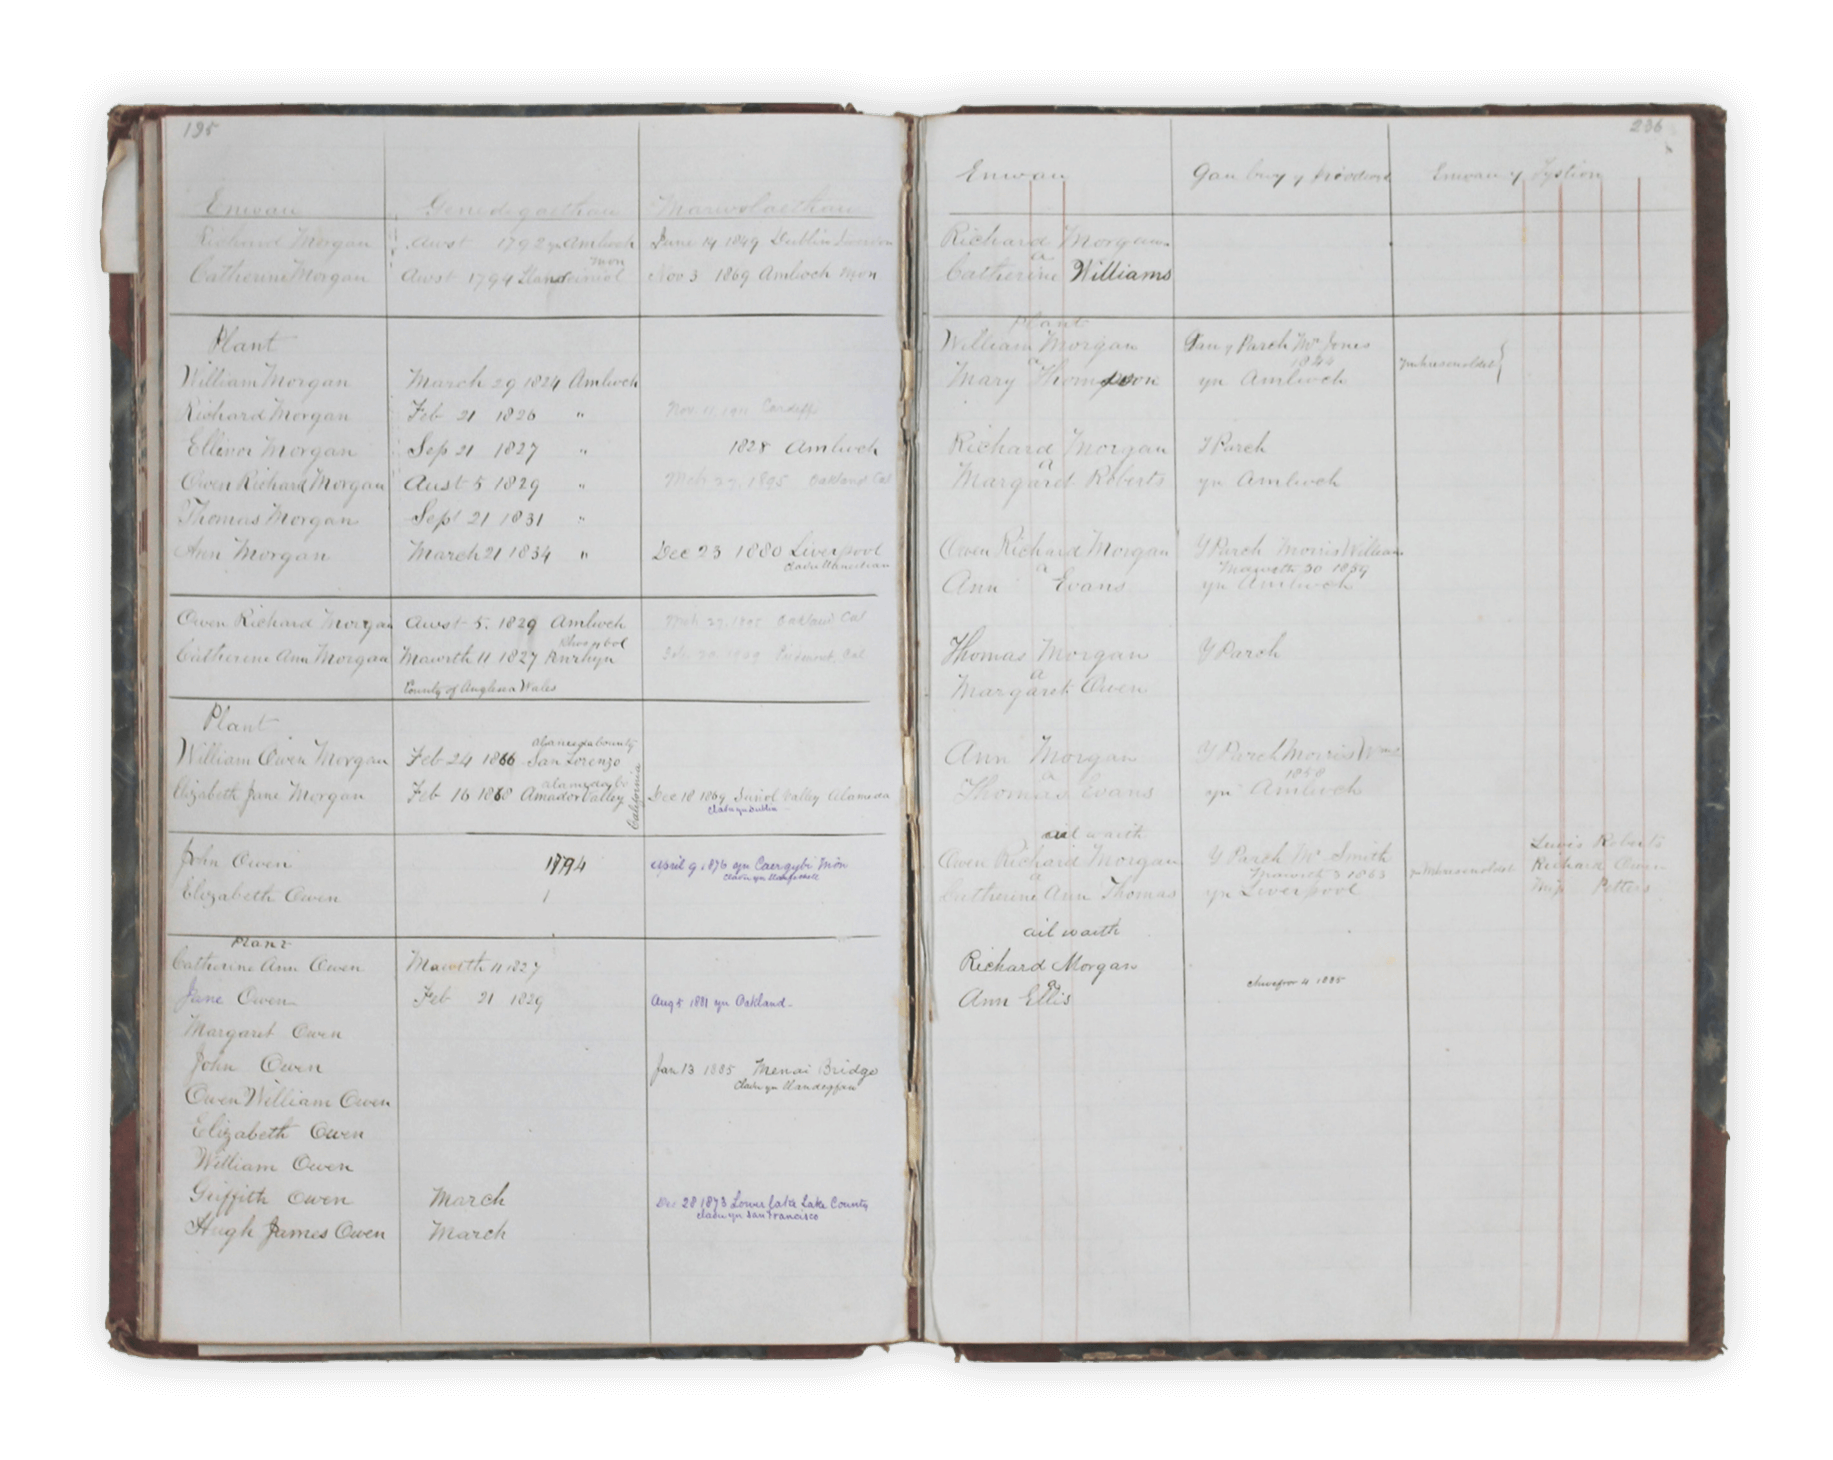 195
Enwau Genedigaethau Marwolaethau
Richard Morgan Awst 1792 yn Amlwch June 14 1849 Dublin
Mon
Catherine Morgan Awst 1794 Llandeiniol Nov 3 1869 Amlwch Mon
Plant
William Morgan March 29 1824 Amlwch
Richard Morgan Feb 21 1826 " Nov. 11, 1911 Cardiff
Ellinor Morgan Sep 21 1827 " 1828 Amlwch
Owen Richard Morgan Aust 5 1829 " Mch 27, 1895 Oakland Cal
Thomas Morgan Sept 21 1831 "
Ann Morgan March 21 1834 " Dec 23 1880 Liverpool
Owen Richard Morgan Awst 5. 1829 Amlwch Mch 27, 1895 Oakland Cal
Rhosybol
Catherine Ann Morgan Mawrth 11 1827
County of Anglesea Wales
Plant
Alameda County
William Owen Morgan Feb 24 1866 San Lorenzo
Alameda Co
Elizabeth Jane Morgan Feb 16 1868 Amador Valley Dec 18 1869 Suñol Valley Alameda
California
cladu yn Dublin
John Owen 1794 April 9, 1876 yn Caergybi Môn
cladu yn
Elizabeth Owen
Plant
Catherine Ann Owen Mawrth 11 1827
Jane Owen Feb 21 1829 Aug 5 1881 yn Oakland
Margaret Owen
John Owen Jan 13 1885 Menai Bridge
cladu yn Llandegfan
Owen William Owen
Elizabeth Owen
William Owen
Griffith Owen March Dec 28 1873 Lower Lake Lake County
cladu yn San Francisco
Hugh James Owen March
206
Enwau Gan bwy y Enwau y Tystion
Richard Morgan
a
Catherine Williams
Plant
William Morgan Gan y Parch Mr Jones
a 1844
Mary Thompson yn Amlwch
Richard Morgan Y Parch
a
Margaret Roberts yn Amlwch
Owen Richard Morgan Y Parch Morris William
a Mawrth 30 1859
Ann Evans yn Amlwch
Thomas Morgan Y Parch
a
Margaret Owen
Ann Morgan Y Parch Morris Wms
a 1858
Thomas Evans yn Amlwch
ail waith Lewis Roberts
Owen Richard Morgan Y Parch Mr Smith Richard Owen
a Mawrth 3 1863
Catherine Ann Thomas yn Liverpool Miss Petters
ail waith
Richard Morgan
a
Ann Ellis Chwefror 4 1885